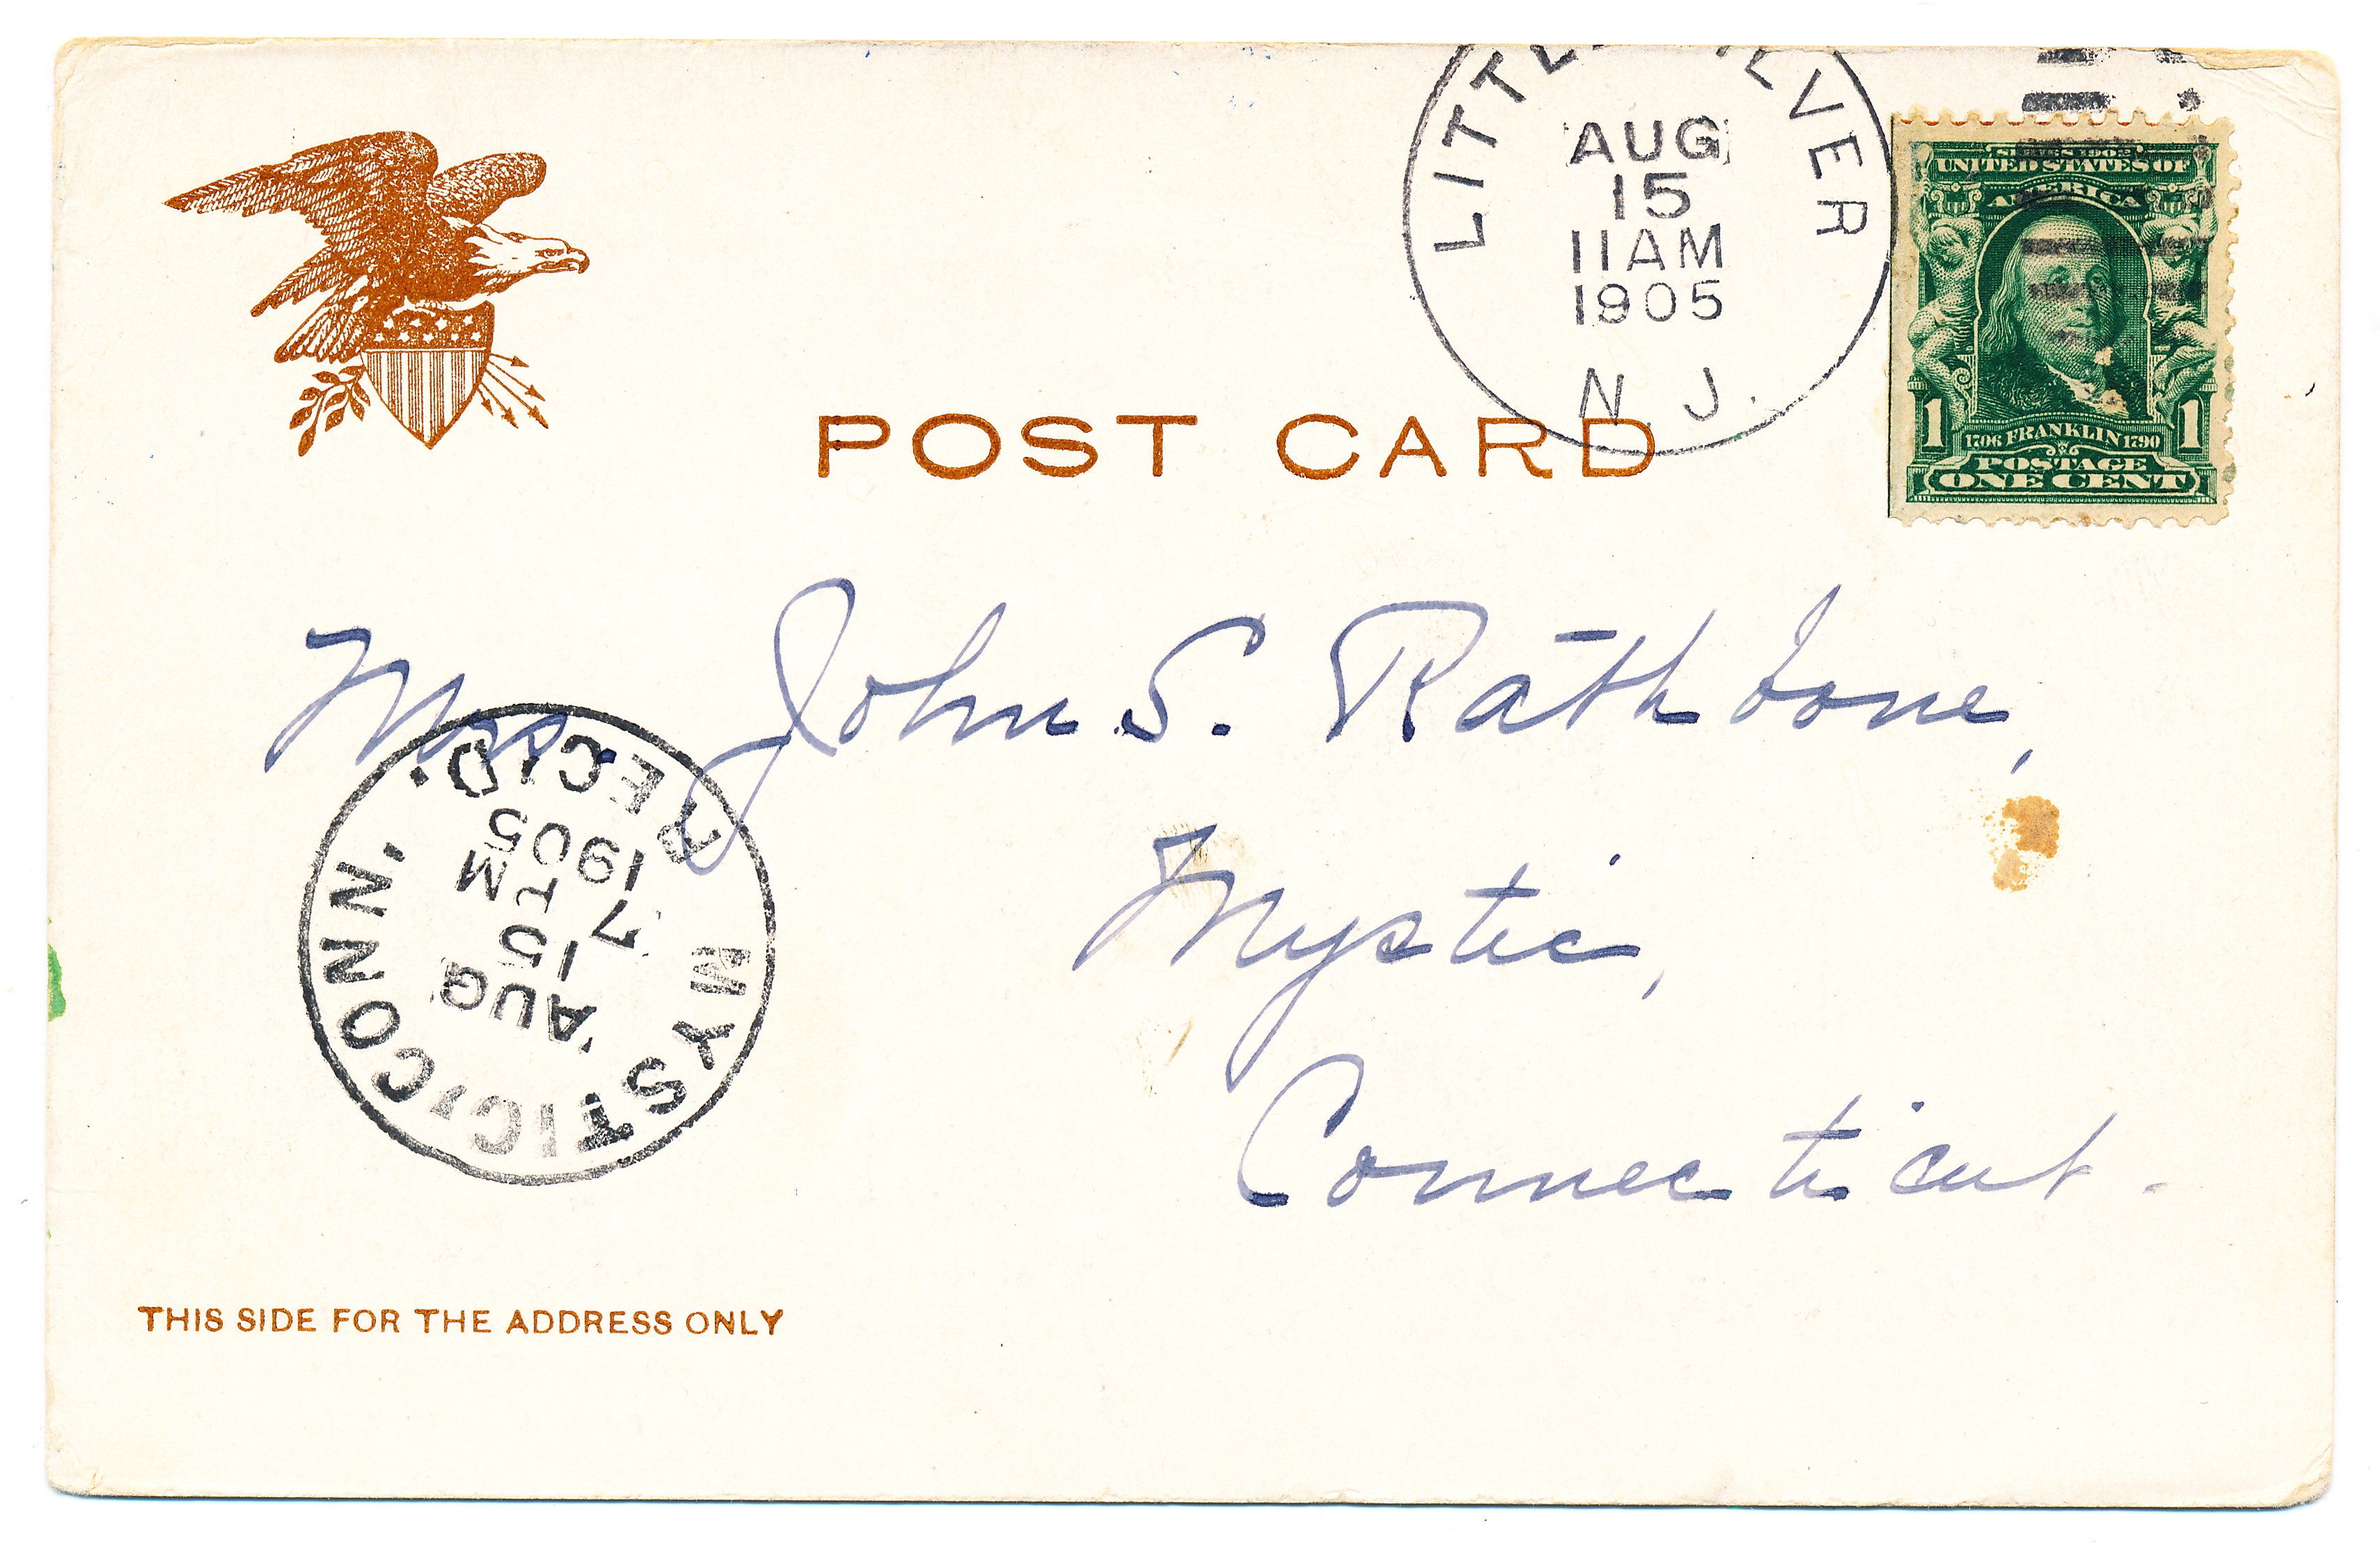 LITTLE SILVER
AUG
15
11 AM
1905
N J.
SERIES 1902
UNITED STATES OF
AMERICA
1 1
1706 FRANKLIN 1790
POSTAGE
ONE CENT
POST CARD
Mrs. John S. Rathbone,
Mystic,
Connecticut.
MYSTIC, CONN.
AUG
15
7 M
1905
REC'D.
THIS SIDE FOR THE ADDRESS ONLY